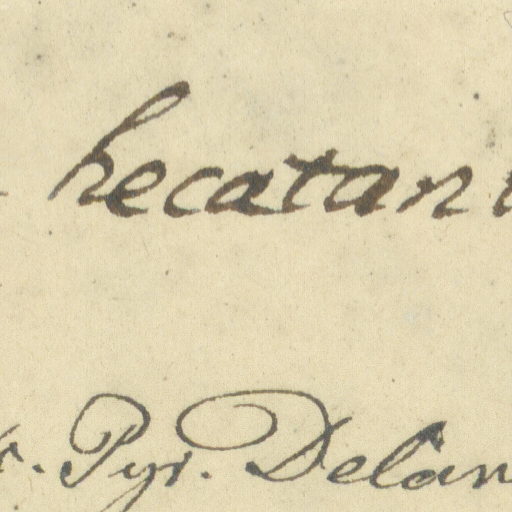 hecatan
Pyr. Delan